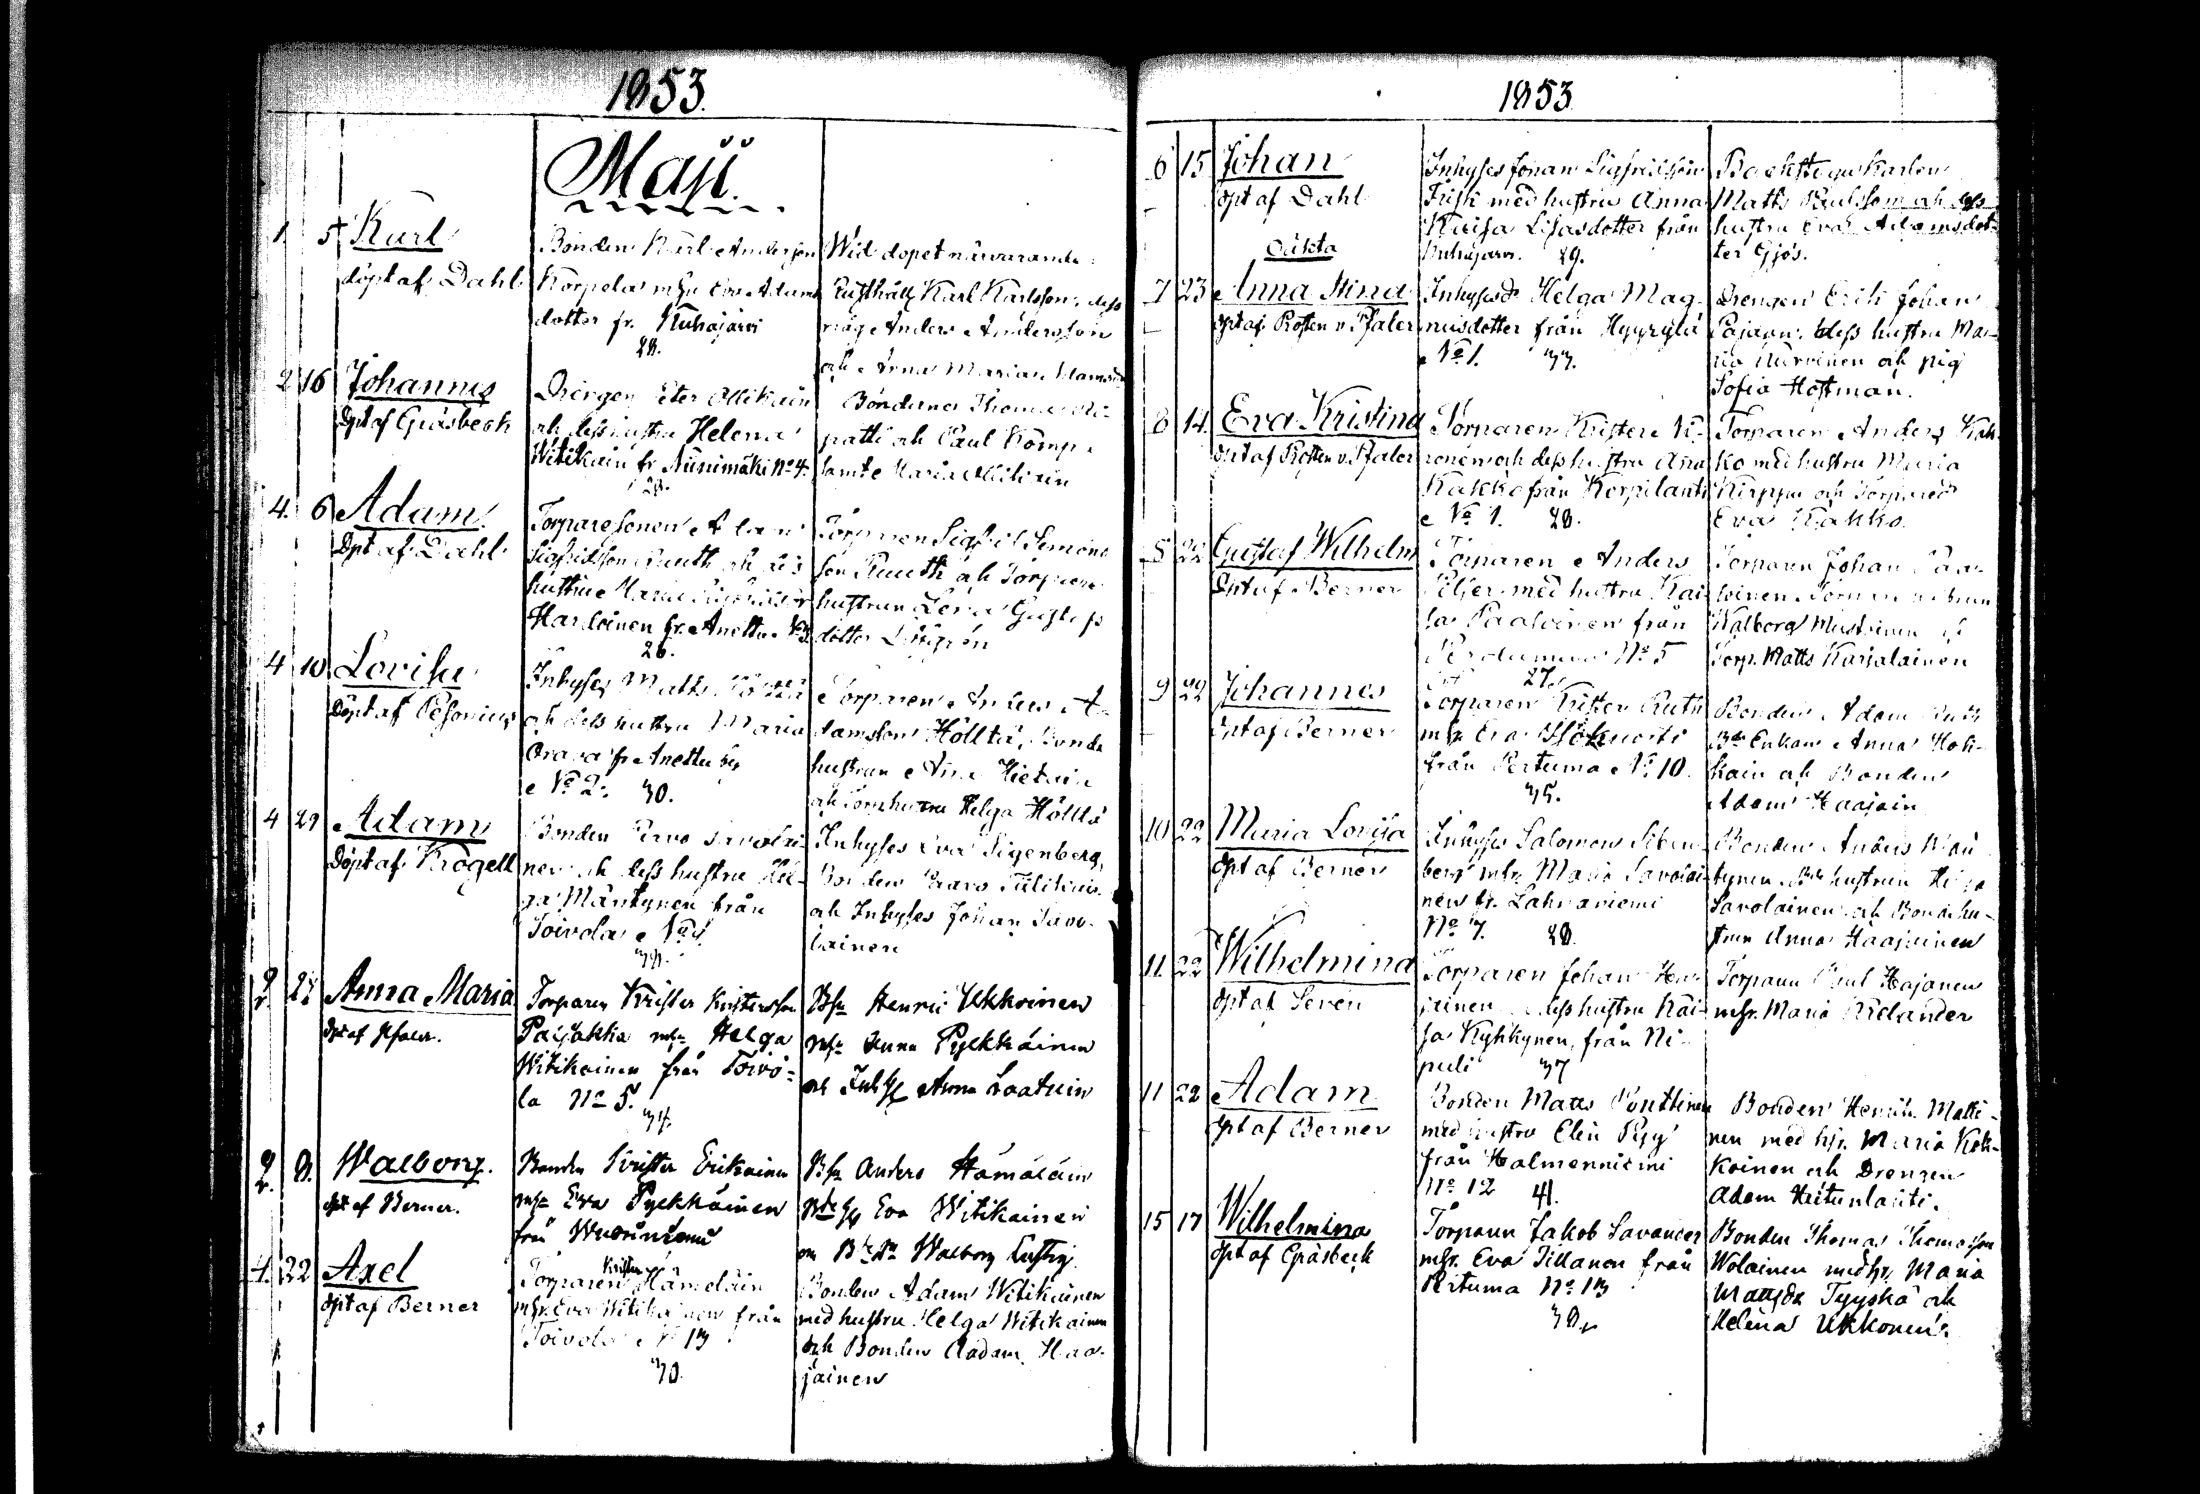 1853.
Maji.
1. 5 Karl
döpt af Dahl
Bonden Karl Andersson
Korpela m. hu Eva Adams
dotter fr. Kuhajärvi
28.
Wid dopet närvarande:
Rusthåll. Karl Karlsson, dess
måg Anders Andersson
och Anna Maria
2 16 Johannes
Dpt af Gråsbeck
Drängen Peter Ollikain
och dess hustru Helena
Witikain fr. Niinimäki No 4.
Bönderna Thomas
patti och Paul Komp.
samt Maria Ollikain
4. 6 Adam
Dpt af Dahl
Torparesonen Adam
Sigfridsson Ruuth och des
hustru Maria
Harloinen fr. Anettu No 3
26.
Torparen Sigfrid Simons
son Ruuth och Torpare
hustrun Lena Gustafs
dotter
4 10 Lovisa
Döpt af Pesonius
Inhyses Matts Höltta
och dess hustru Maria
Orava fr. Anettu by
No 2. 30.
Torparen Anders A-
damsson Hölltä, Bonde
hustrun Anna Hietain
och Torp.hustru Helga Hölttä
4 29 Adam
Döpt af Krogell
Bonden Paavo Savolai
nen och dess hustru Hel-
ga Mäntynen från
Toivola No
Inhyses Eva Sigenberg,
Bonden Paavo Tiilikain
och Inhyses Johan Savo-
lainen
2. 27 Anna Maria
dpt af Pfaler.
Torparen Krister Kristersson
Paijakka mhu Helga
Witikainen från Toivo-
la No 5.
34.
Bn Henric Ukkoinen
mhu Anna Pyckkäinen
och Inhys Anna Laatuin
2. 8. Walborg.
dpt af Berner.
Bonden Krister Erikainen
mhu Eva Pyckkäinen
från Wuoriniemi
Bn Anders Hämäläin
Bdehu Eva Witikainen
och Bdedr Walborg Lustig.
4. 22 Axel
dpt af Berner
Krister
Torparen Hämäläin
mhu. Eva Witikainen från
Toivola No 13
30.
Bonden Adam Witikainen
med hustru Helga Witikainen
och Bonden Aadam Haa-
jainen
1853
6 15 Johan
dpt af Dahl
Inhyses Johan Sigfridsson
Frisk med hustru Anna
Kaisa Lisasdotter från
Kuhajärvi. 29.
Backstugukarlen
Matts Paulsson och dess
hustru Eva Adamsdot-
ter Gjös.
oäkta
7 23 Anna Stina
dpt af Prosten v. Pfaler
Inhyses Helga Mag-
nusdotter från Hyyrylä
No 1. 33.
Drengen Erik Johan
Pajain, dess hustru Ma-
ria Nurvinen och pig
Sofia Hoffman.
8 14 Eva Kristina
dpt af Prosten v. Pfaler
Torparen Krister Ki-
ronen och dess hustru Ana
Kakko från Korpilanti
No 1. 28.
Torparen Anders Kak-
ko med hustru Maria
Kirppu och Torpared
Eva Kakko.
8 22 Gustaf Wilhelm
Dpt af Berner
Torparen Anders
Piljer med hustru Kai-
sa Paaloinen från
Pertuma No 5
27.
Torparn Johan Paa-
loinen. Torparehustrun
Walborg Mustoinen och
Torp. Matts Karjalainen
9 22 Johannes
dpt af Berner
Torparen Krister Ruth
mhu Eva Hökuorts
från Pertuma No 10.
35.
Bonden Adam Ruth
Bde Enkan Anna Hok-
kain och Bonden
Adam Haajain
10 22 Maria Lovisa
dpt af Berner
Inhyses Salomon Siben-
berg mhu Maria Savolai-
nen fr. Lahnaniemi
No 7. 28.
Bonden Anders Män
tynen, Bde hustrun Helga
Savolainen och Bondehu-
strun Anna Haajainen
11 22 Wilhelmina
dpt af Seven
Torparen Johan Ha-
jainen dess hustru Kai-
sa Kyhkynen, från Ni-
puli 37
Torparn Paul Hajanen
mhr. Maria Kielander
11 22 Adam
dpt af Berner
Bonden Matts Ponttinen
med hustru Elin Pyy
från Halmenniemi
No 12 41.
Bonden Henrik Matti-
nen med hr. Maria Kok-
koinen och Drengen
Adam Heitunlahti.
15 17 Wilhelmina
dpt af Gråsbeck
Torparn Jakob Savander
mhr. Eva Tillanen från
Pertuma No 13
38
Bonden Thomas Thomasson
Wolainen medhr. Maria
Mattsdr Tyyskä och
Helena Ukkonen.